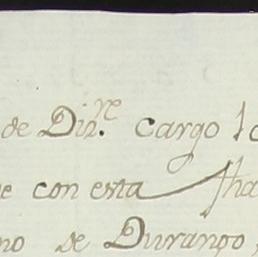 de Din.re cargo
e con esta fha
no de Durango,